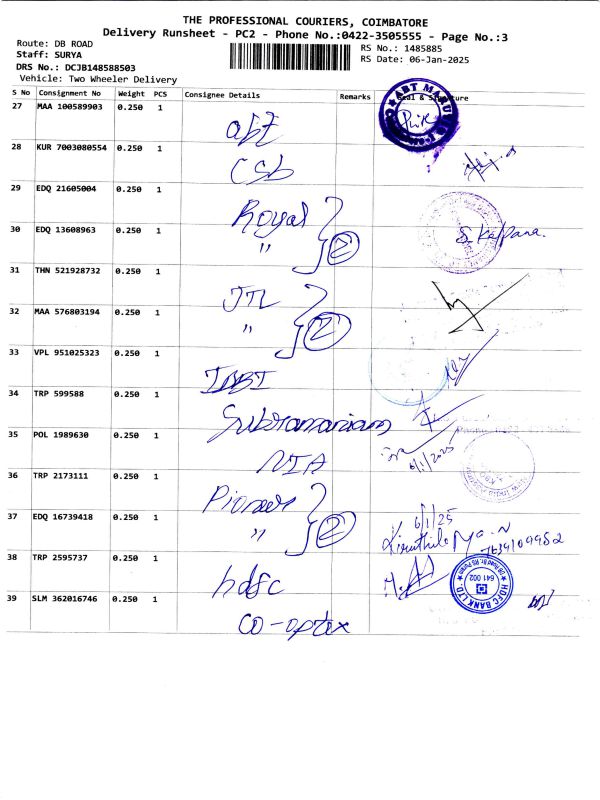 THE PROFESSIONAL COURIERS, COIMBATORE
Delivery Runsheet - PC2 - Phone No.:0422-3505555 - Page No.:3
Route: DB ROAD
RS No.: 1485885
Staff: SURYA
RS Date: 06-Jan-2025
DRS No.: DCJB148588503
Vehicle: Two Wheeler Delivery
S No Consignment No Weight PCS Consignee Details Remarks Seal & Signature
27 MAA 100589903 0.250 1 abt
ABT MARU
28 KUR 7003080554 0.250 1 CSB
29 EDQ 21605004 0.250 1 Royal
30 EDQ 13608963 0.250 1 " 2 S. Kalpana.
31 THN 521928732 0.250 1 JTL
32 MAA 576803194 0.250 1 " 2
33 VPL 951025323 0.250 1
34 TRP 599588 0.250 1 Subramaniam
35 POL 1989630 0.250 1 NIA 6/1/2025
36 TRP 2173111 0.250 1 Pioneer
37 EDQ 16739418 0.250 1 " 2 6/1/25
7639109952
38 TRP 2595737 0.250 1 hdfc
HDFC BANK LTD
641 002
39 SLM 362016746 0.250 1 co-optex